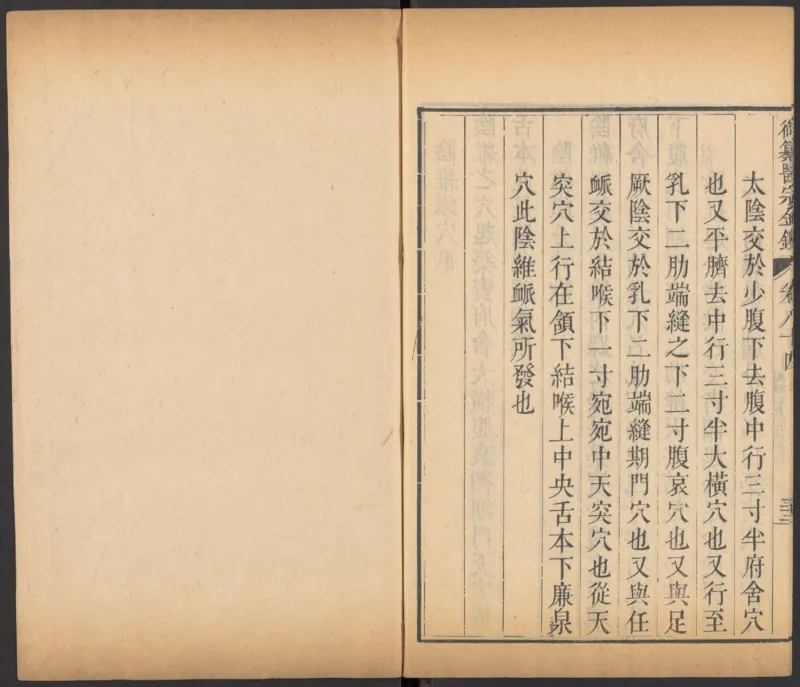 御纂醫宗金鑑 卷八十四
太陰交於少腹下去腹中行三寸半府舍穴
也又平臍去中行三寸半大橫穴也又行至
乳下二肋端縫之下二寸腹哀穴也又與足
厥陰交於乳下二肋端縫期門穴也又與任
衇交於結喉下一寸宛宛中天突穴也從天
突穴上行在頷下結喉上中央舌本下廉泉
穴此陰維衇氣所發也